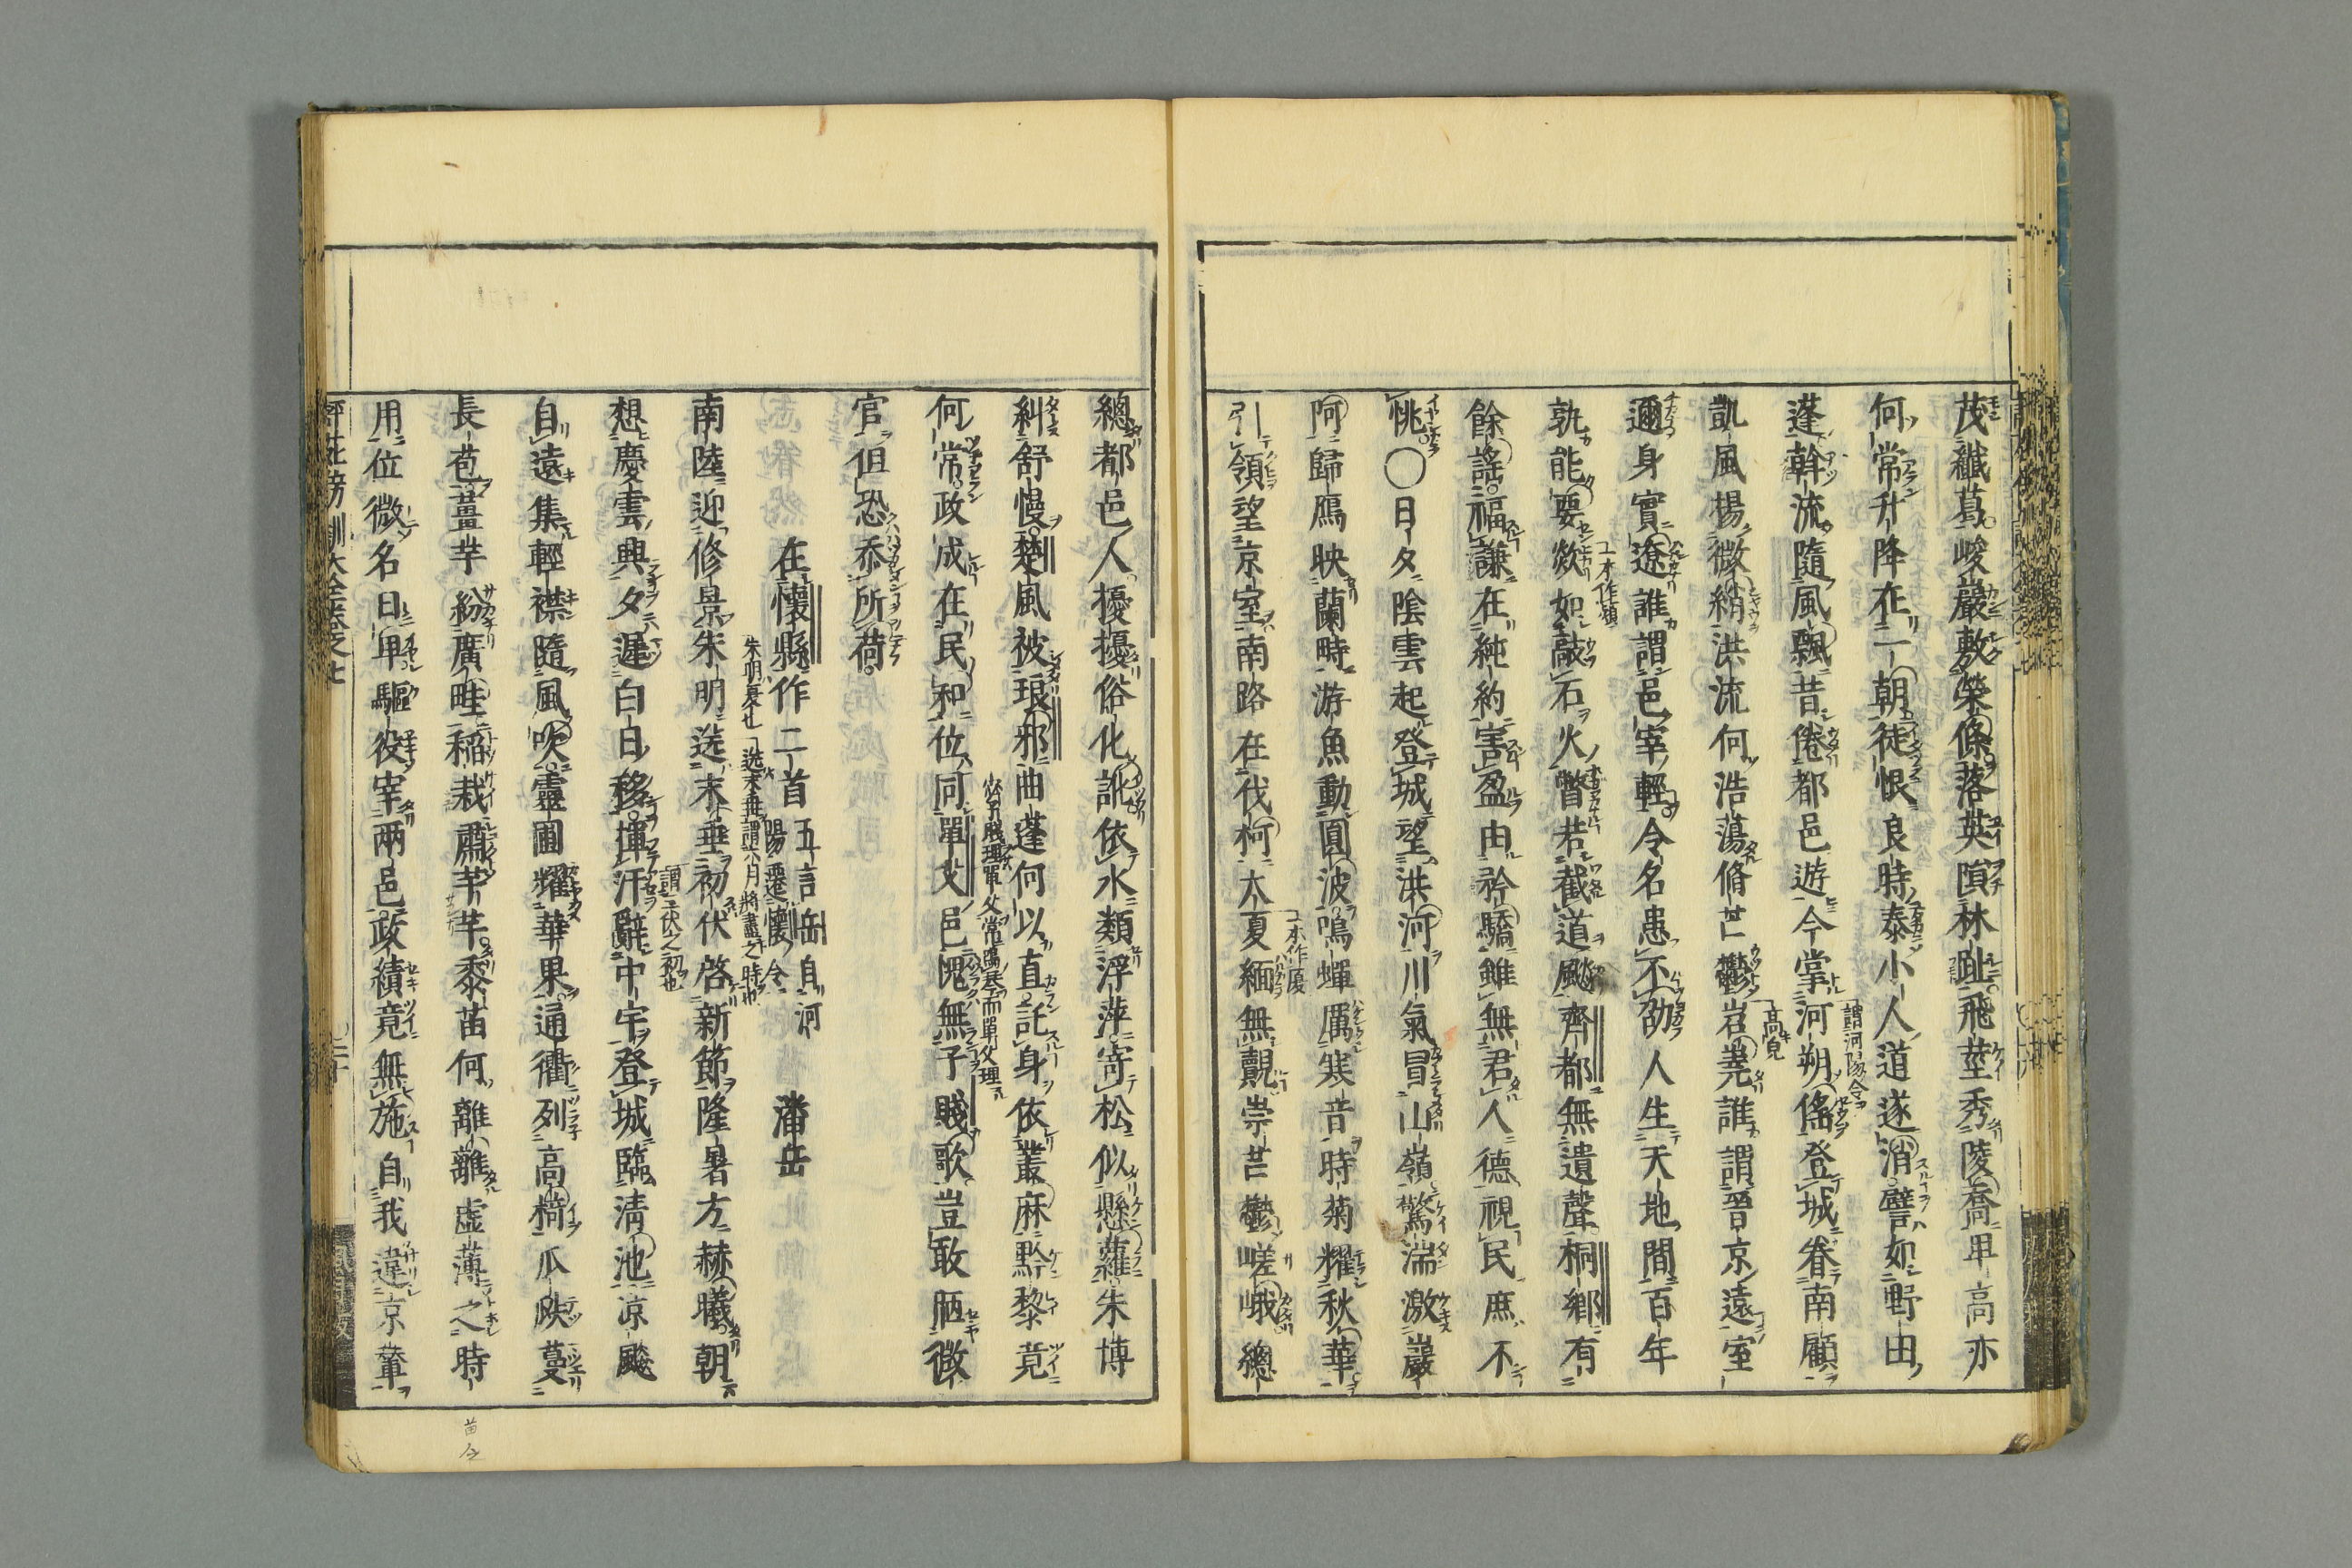 茂纖葛峻巖敷榮條落英隕林趾飛莖秀陵喬卑高亦
何常升降在一朝徒恨良時泰小人道遂消譬如野田
蓬斡流隨風飄昔倦都邑遊今掌河朔徭登城眷南顧
謂河陽令
凱風揚微綃洪流何浩蕩脩芒鬱岧嶤誰謂晉京遠室
高皃
邇身實遼誰謂邑宰輕令名患不劭人生天地間百年
孰能要欻如敲石火瞥若截道飈齊都無遺聲桐鄉有
餘謠福謙在純約害盈由矜驕雖無君人德視民庶不
恌○日夕陰雲起登城望洪河川氣冒山嶺驚湍激巖
阿歸鴈映蘭畤游魚動圓波鳴蟬厲寒音時菊耀秋華
引領望京室南路在伐柯大夏緬無覿崇芒鬱嵯峨總
一本作厦
總都邑人擾擾俗化訛依水類浮萍寄松似懸蘿朱博
糾舒慢楚風被琅邪曲蓬何以直託身依叢麻黔黎竟
何常政成在民和位同單父邑愧無子賤歌豈敢陋微
官但恐忝所荷
在懷縣作二首 五言岳自河陽遷懷令 潘岳
南陸迎修景朱明送末垂初伏啓新節隆暑方赫曦朝
朱明夏也
想慶雲興夕遲白日移揮汗辭中宇登城臨清池凉飈
自遠集輕襟隨風吹靈圃耀華果通衢列高椅瓜瓞蔓
長苞薑芋紛廣畦稻栽肅芊芊黍苗何離離虛薄乏時
用位微名日卑驅役宰兩邑政績竟無施自我違京輦